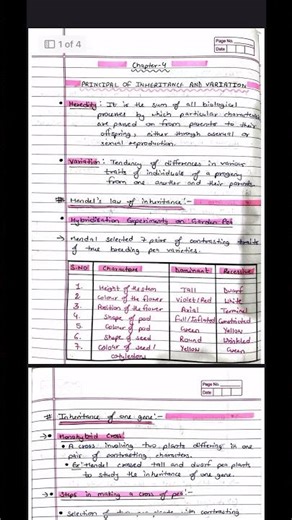 Page No.
Date
1 of 4
Chapter-4
PRINCIPAL OF INHERITANCE AND VARIATION
• Heredity: It is the sum of all biological
process by which particular characters
are passed on from parents to their
offspring, either through asexual or
sexual reproduction.
• Variation: Tendency of differences in various
traits of individuals of a progeny
from one another and their parents.
# Mendel's law of inheritance:-
• Hybridization Experiments on Garden Pea
→ Mendal selected 7 pairs of contrasting traits
of true breeding pea varieties.
S.NO Characters Dominant Recessive
1. Height of the stem Tall Dwarf
2. Colour of the flower Violet/Red White
3. Position of the flower Axial Terminal
4. Shape of pod Full/Inflated Constricted
5. Colour of pod Green Yellow
6. Shape of seed Round Wrinkled
7. Colour of seed/ Yellow Green
cotyledons
Page No.
Date
# Inheritance of one gene:-
→• Monohybrid Cross:
• A cross involving two plants differing in one
pair of contrasting characters.
• Mendel crossed tall and dwarf pea plants
to study the inheritance of one gene.
→• Steps in making a cross of pea:-
• Selection of two pea plants with contrasting